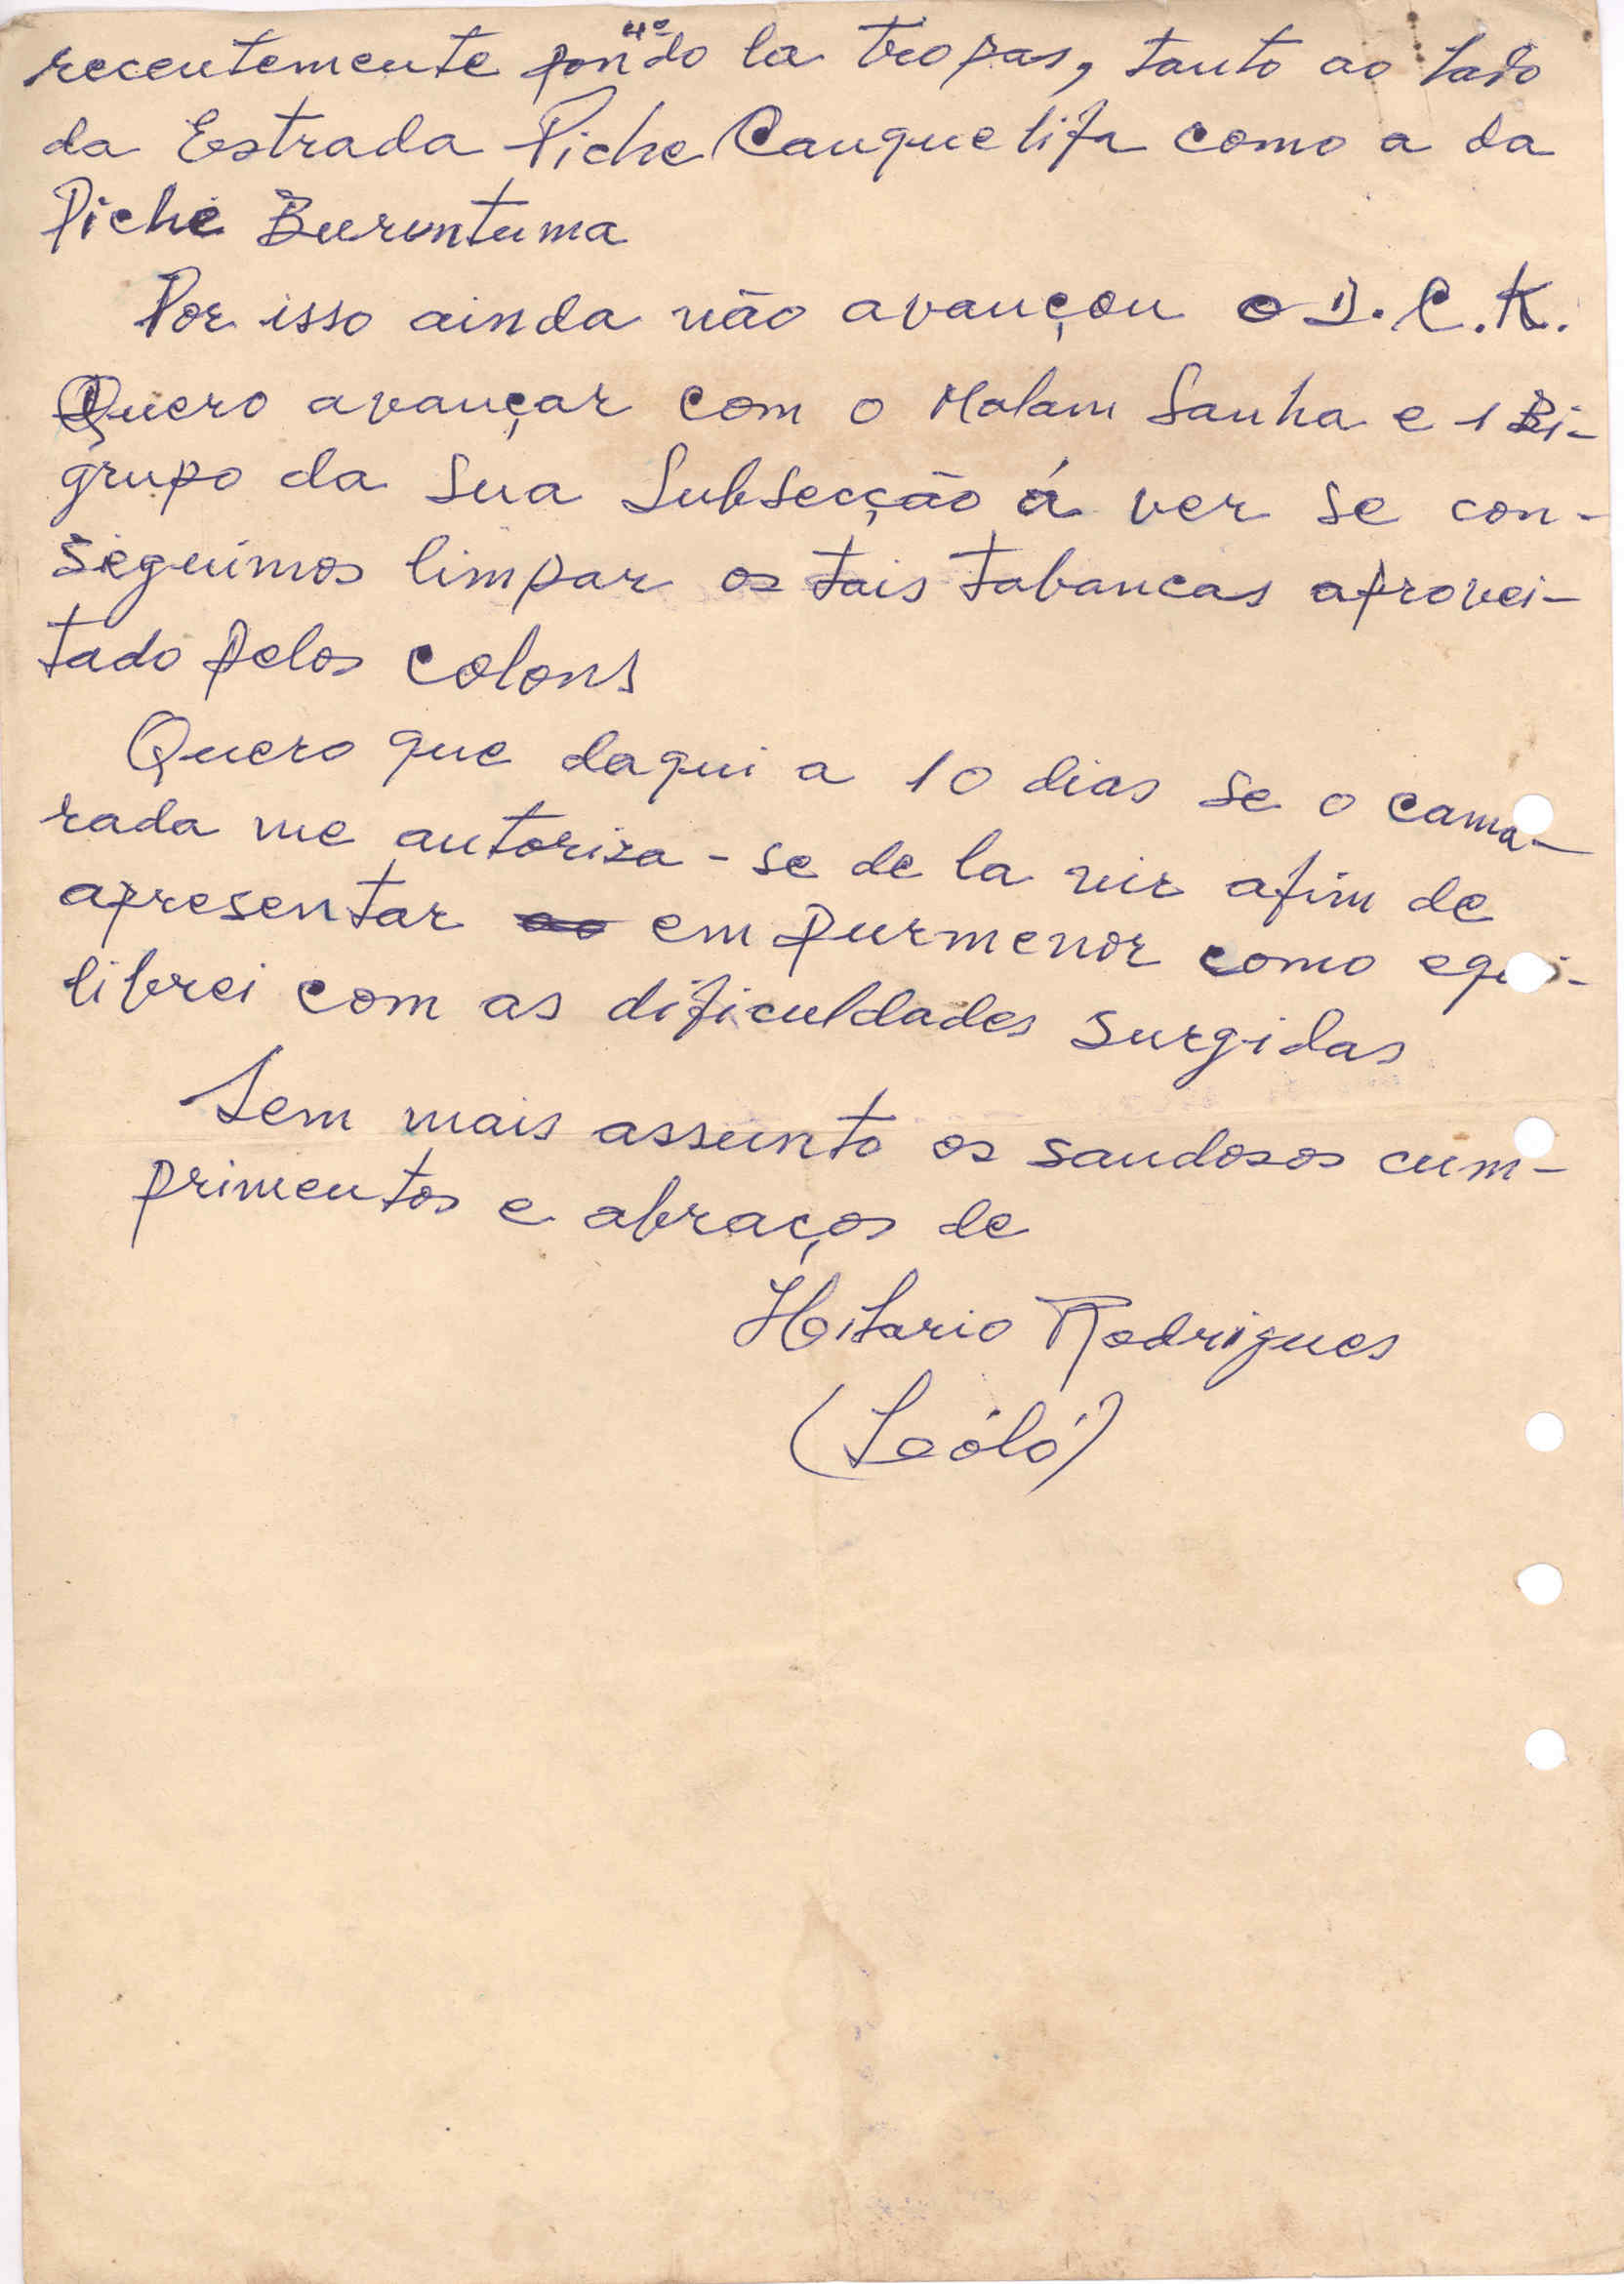 4º
recentemente pondo la tropas, tanto ao lado
da Estrada Piche Canquelifa como a da
Piche Buruntuma
Por isso ainda não avançou o D.C.K.
Quero avançar com o Malam Sanha e 1 Bi-
grupo da sua Subsecção á ver se con-
seguimos limpar os tais tabancas aprovei-
tado pelos colons
Quero que daqui a 10 dias se o cama-
rada me autoriza-se de la vir afim de
apresentar em purmenor como equi-
librei com as dificuldades surgidas
Sem mais assunto os saudosos cum-
primentos e abraços de
Hilario Rodrigues
(Lóló)